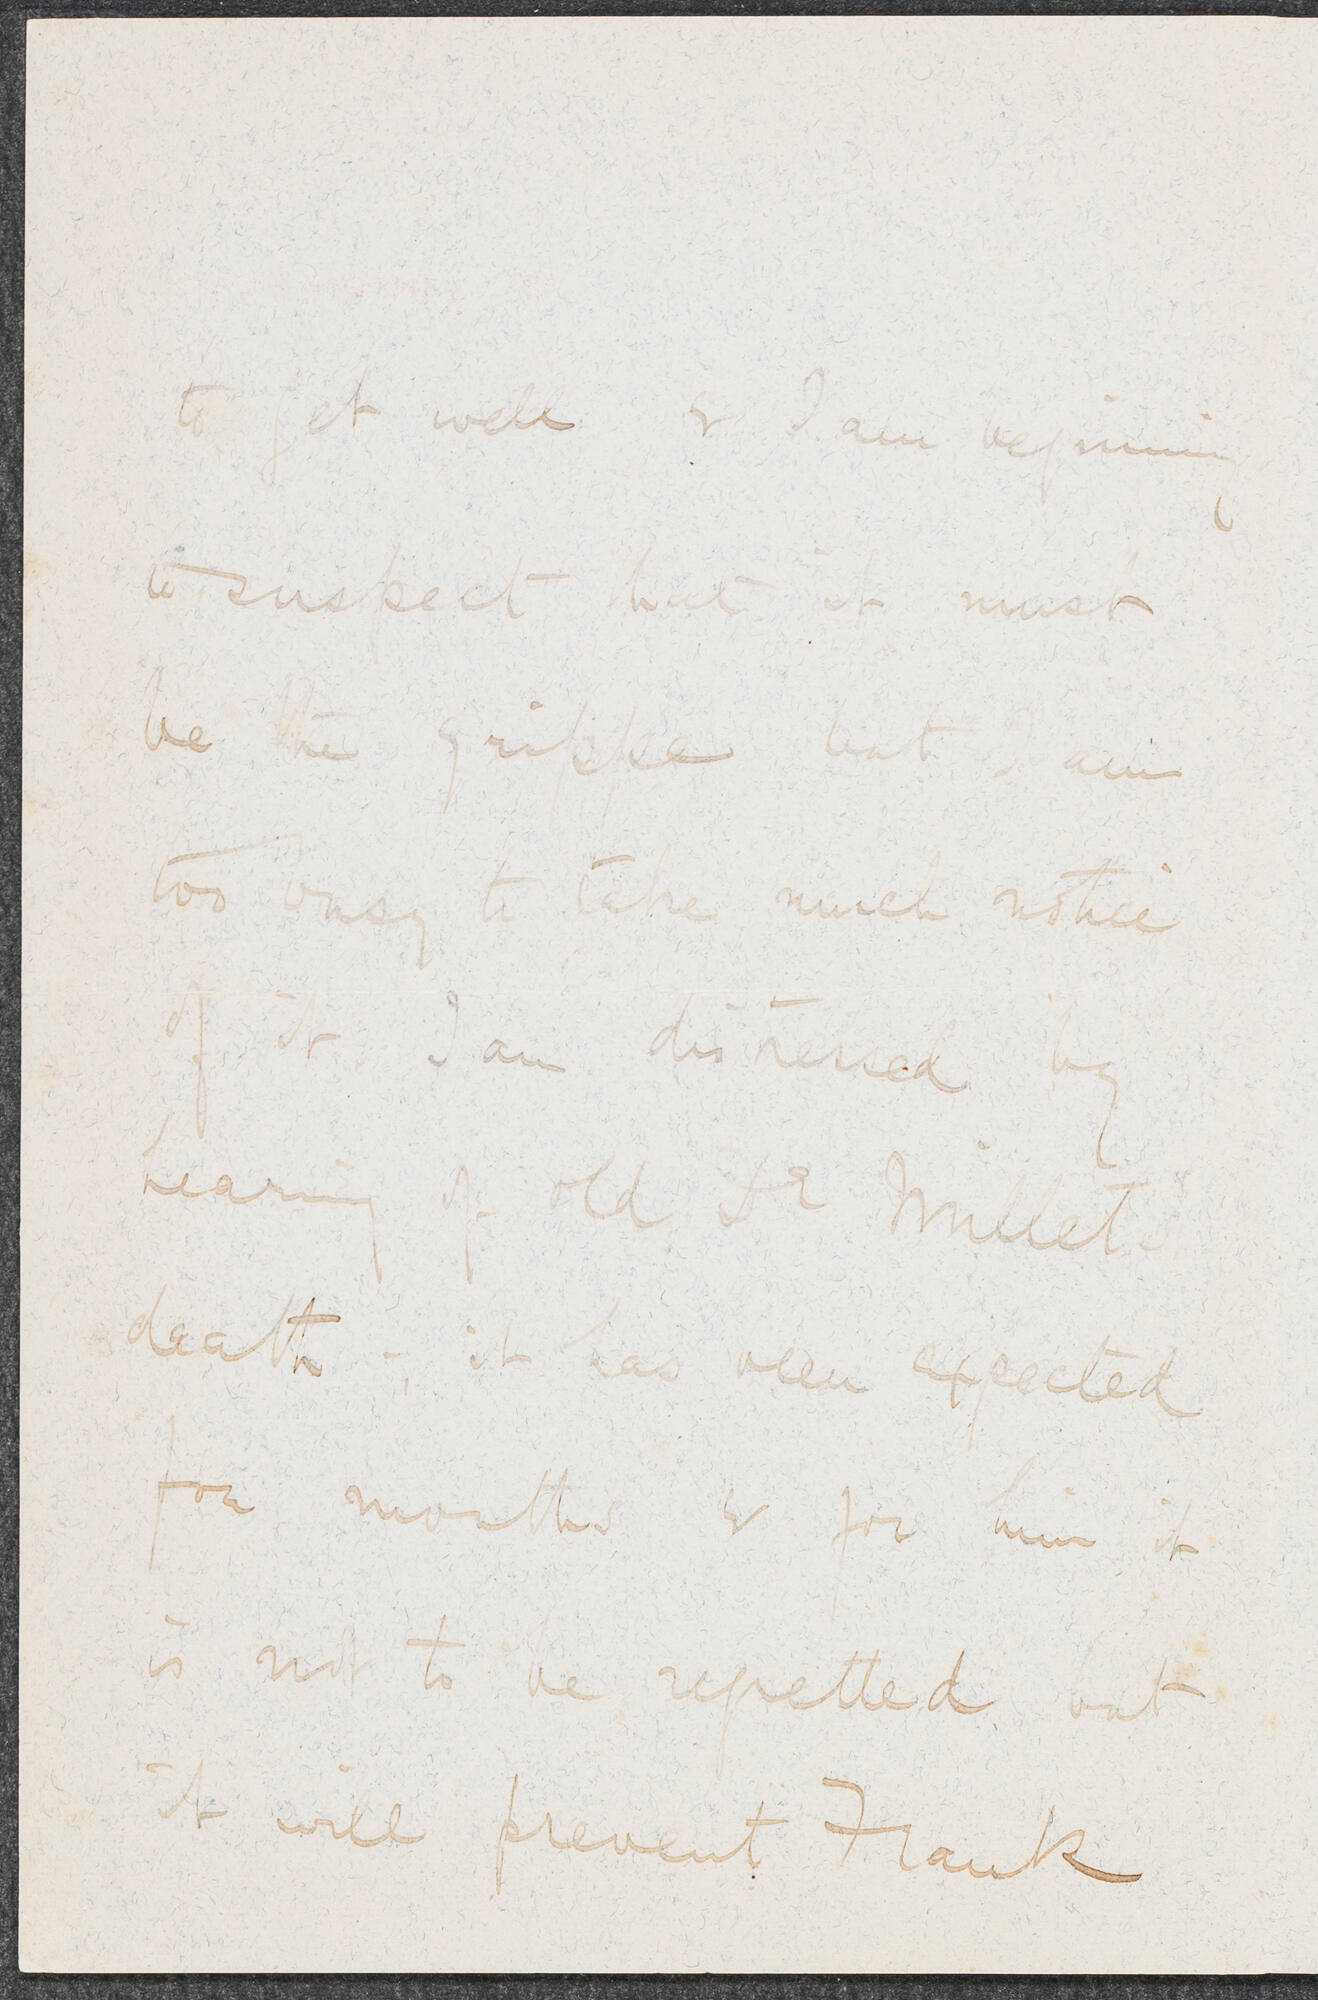 to get well & I am beginning
to suspect that it must
be the grippe but I am
too busy to take much notice
of it I am distressed by
hearing of old Dr Millet's
death -; it has been expected
for months & for him it
is not to be regretted but
it will prevent Frank